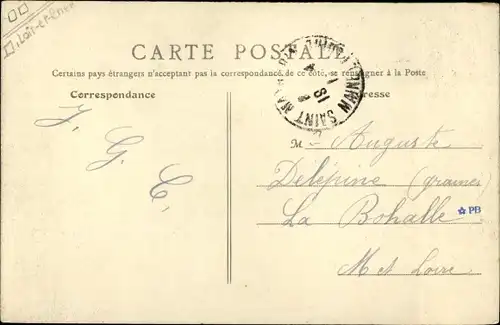 Loir-et-Cher
CARTE POSTALE
Certains pays étrangers n'acceptant pas la correspondance de ce côté, se renseigner à la Poste
Correspondance
Adresse
SAINT
J.
G.
C.
M. Auguste
Delépine (graines)
La Bohalle
PB
M et Loire